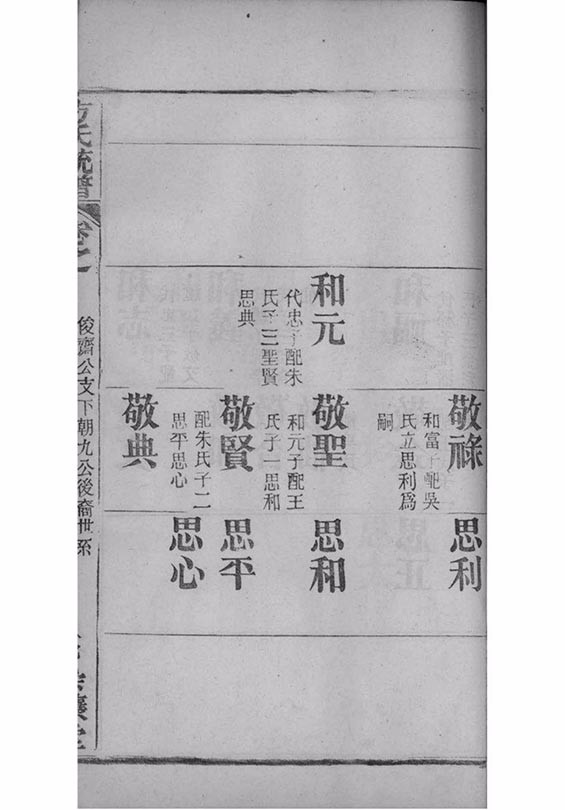 敬祿
和富子配吳
氏立思利爲
嗣
思利
和元
代忠子配朱
氏子三聖賢
思典
敬聖
和元子配王
氏子一思和
思和
敬賢
配朱氏子二
思平思心
思平
思心
敬典
方氏統譜
卷之一
俊齋公支下朝九公後裔世系